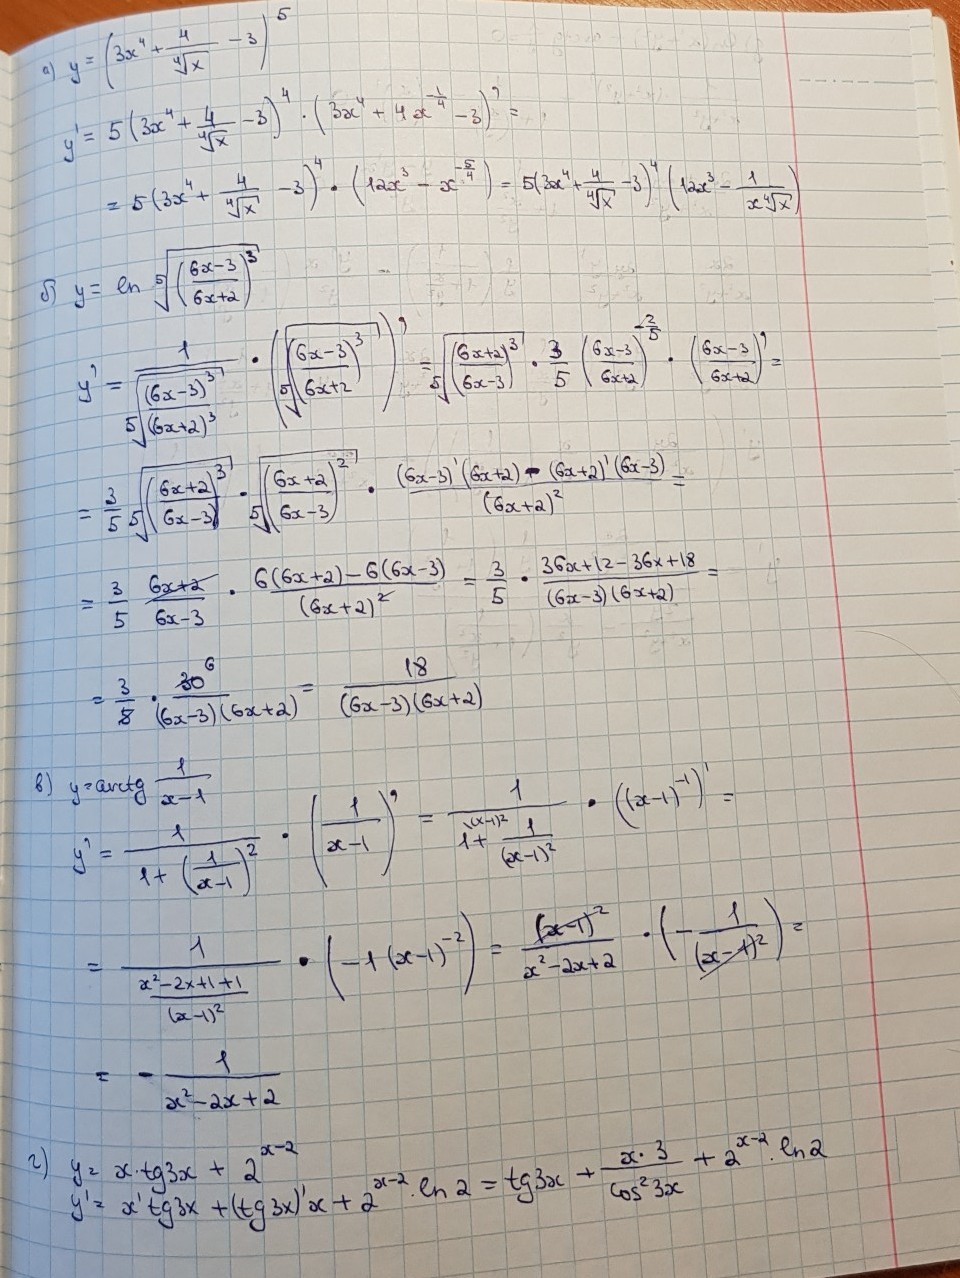 а) y = (3x⁴ + 4/⁴√x − 3)⁵
y' = 5(3x⁴ + 4/⁴√x − 3)⁴ · (3x⁴ + 4x^(-1/4) − 3)' =
= 5(3x⁴ + 4/⁴√x − 3)⁴ · (12x³ − x^(-5/4)) = 5(3x⁴ + 4/⁴√x − 3)⁴ (12x³ − 1/(x ⁴√x))
б) y = ln ⁵√((6x−3)/(6x+2))³
y' = 1/(⁵√((6x−3)³/(6x+2)³)) · (⁵√((6x−3)/(6x+2))³)' = ⁵√((6x+2)/(6x−3))³ · 3/5 ((6x−3)/(6x+2))^(-2/5) · ((6x−3)/(6x+2))' =
= 3/5 ⁵√((6x+2)/(6x−3))³ · ⁵√((6x+2)/(6x−3))² · ((6x−3)'(6x+2) − (6x+2)'(6x−3))/(6x+2)² =
= 3/5 (6x+2)/(6x−3) · (6(6x+2) − 6(6x−3))/(6x+2)² = 3/5 · (36x+12−36x+18)/((6x−3)(6x+2)) =
= 3/5 · 30 6/((6x−3)(6x+2)) = 18/((6x−3)(6x+2))
в) y = arctg 1/(x−1)
y' = 1/(1+(1/(x−1))²) · (1/(x−1))' = 1/(1 (x−1)² + 1/(x−1)²) · ((x−1)⁻¹)' =
= 1/((x²−2x+1+1)/(x−1)²) · (−1·(x−1)⁻²) = (x−1)²/(x²−2x+2) · (−1/(x−1)²) =
= − 1/(x²−2x+2)
г) y = x·tg3x + 2^(x−2)
y' = x' tg3x + (tg3x)'x + 2^(x−2)·ln2 = tg3x + x·3/cos²3x + 2^(x−2)·ln2